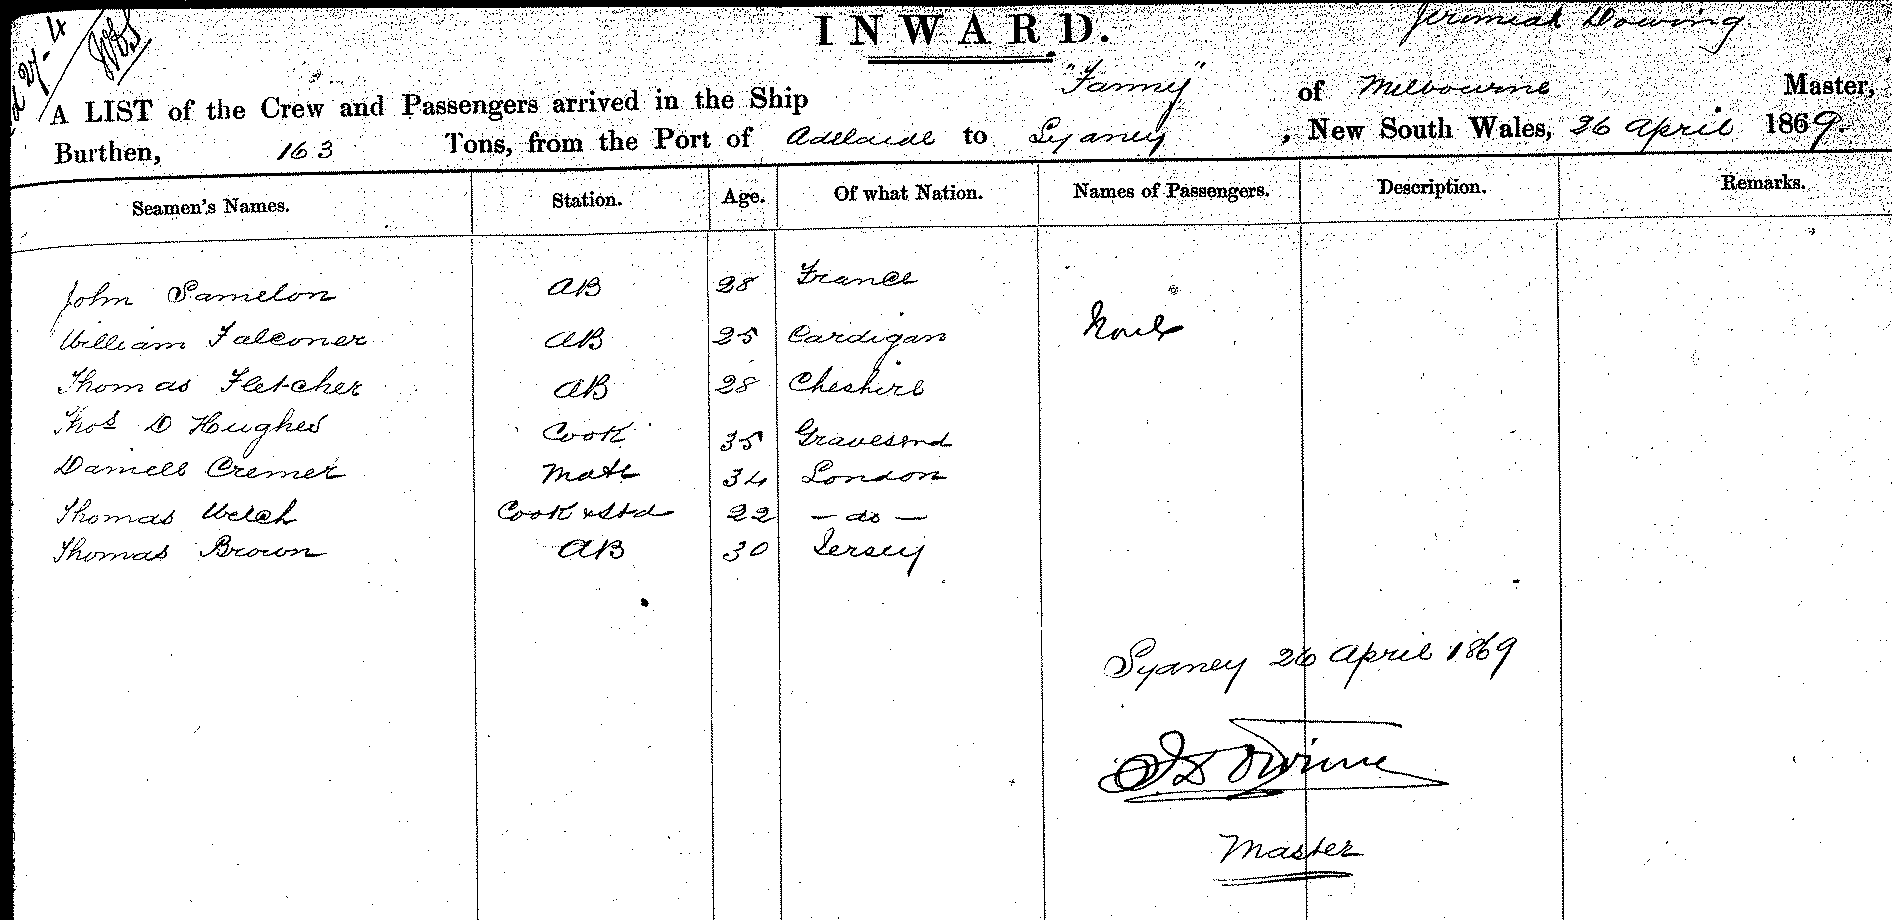 27-4
INWARD.
Jeremiah Dowing
A LIST of the Crew and Passengers arrived in the Ship "Fanny" of Melbourne Master,
Burthen, 163 Tons, from the Port of Adelaide to Sydney, New South Wales, 26 April 1869.
Seamen's Names. Station. Age. Of what Nation. Names of Passengers. Description. Remarks.
John Samelon AB 28 France
William Falconer AB 25 Cardigan None
Thomas Fletcher AB 28 Cheshire
Thos D Hughes Cook 35 Gravesend
Daniell Cremer Mate 34 London
Thomas Welch Cook & Std 22 - do -
Thomas Brown AB 30 Jersey
Sydney 26 April 1869
Master